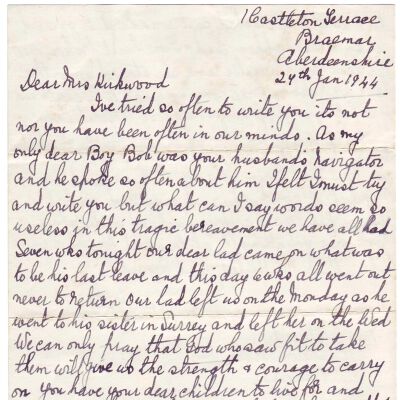 1 Castleton Terrace
Braemar
Aberdeenshire
24th Jan 1944
Dear Mrs Kirkwood
I've tried so often to write you its not
nor you have been often in our minds. As my
only dear Boy Bob was your husbands Navigator
and he spoke so often about him I felt I must try
and write you but what can I say words seem so
useless in this tragic bereavement we have all had
Seven wks tonight our dear lad came on what was
to be his last leave and this day 6 wks all went out
never to return Our lad left us on the Monday as he
went to his sister in Surrey and left her on the Wed
We can only pray that God who saw fit to take
them will give us the strength & courage to carry
on you have your dear children to live for and